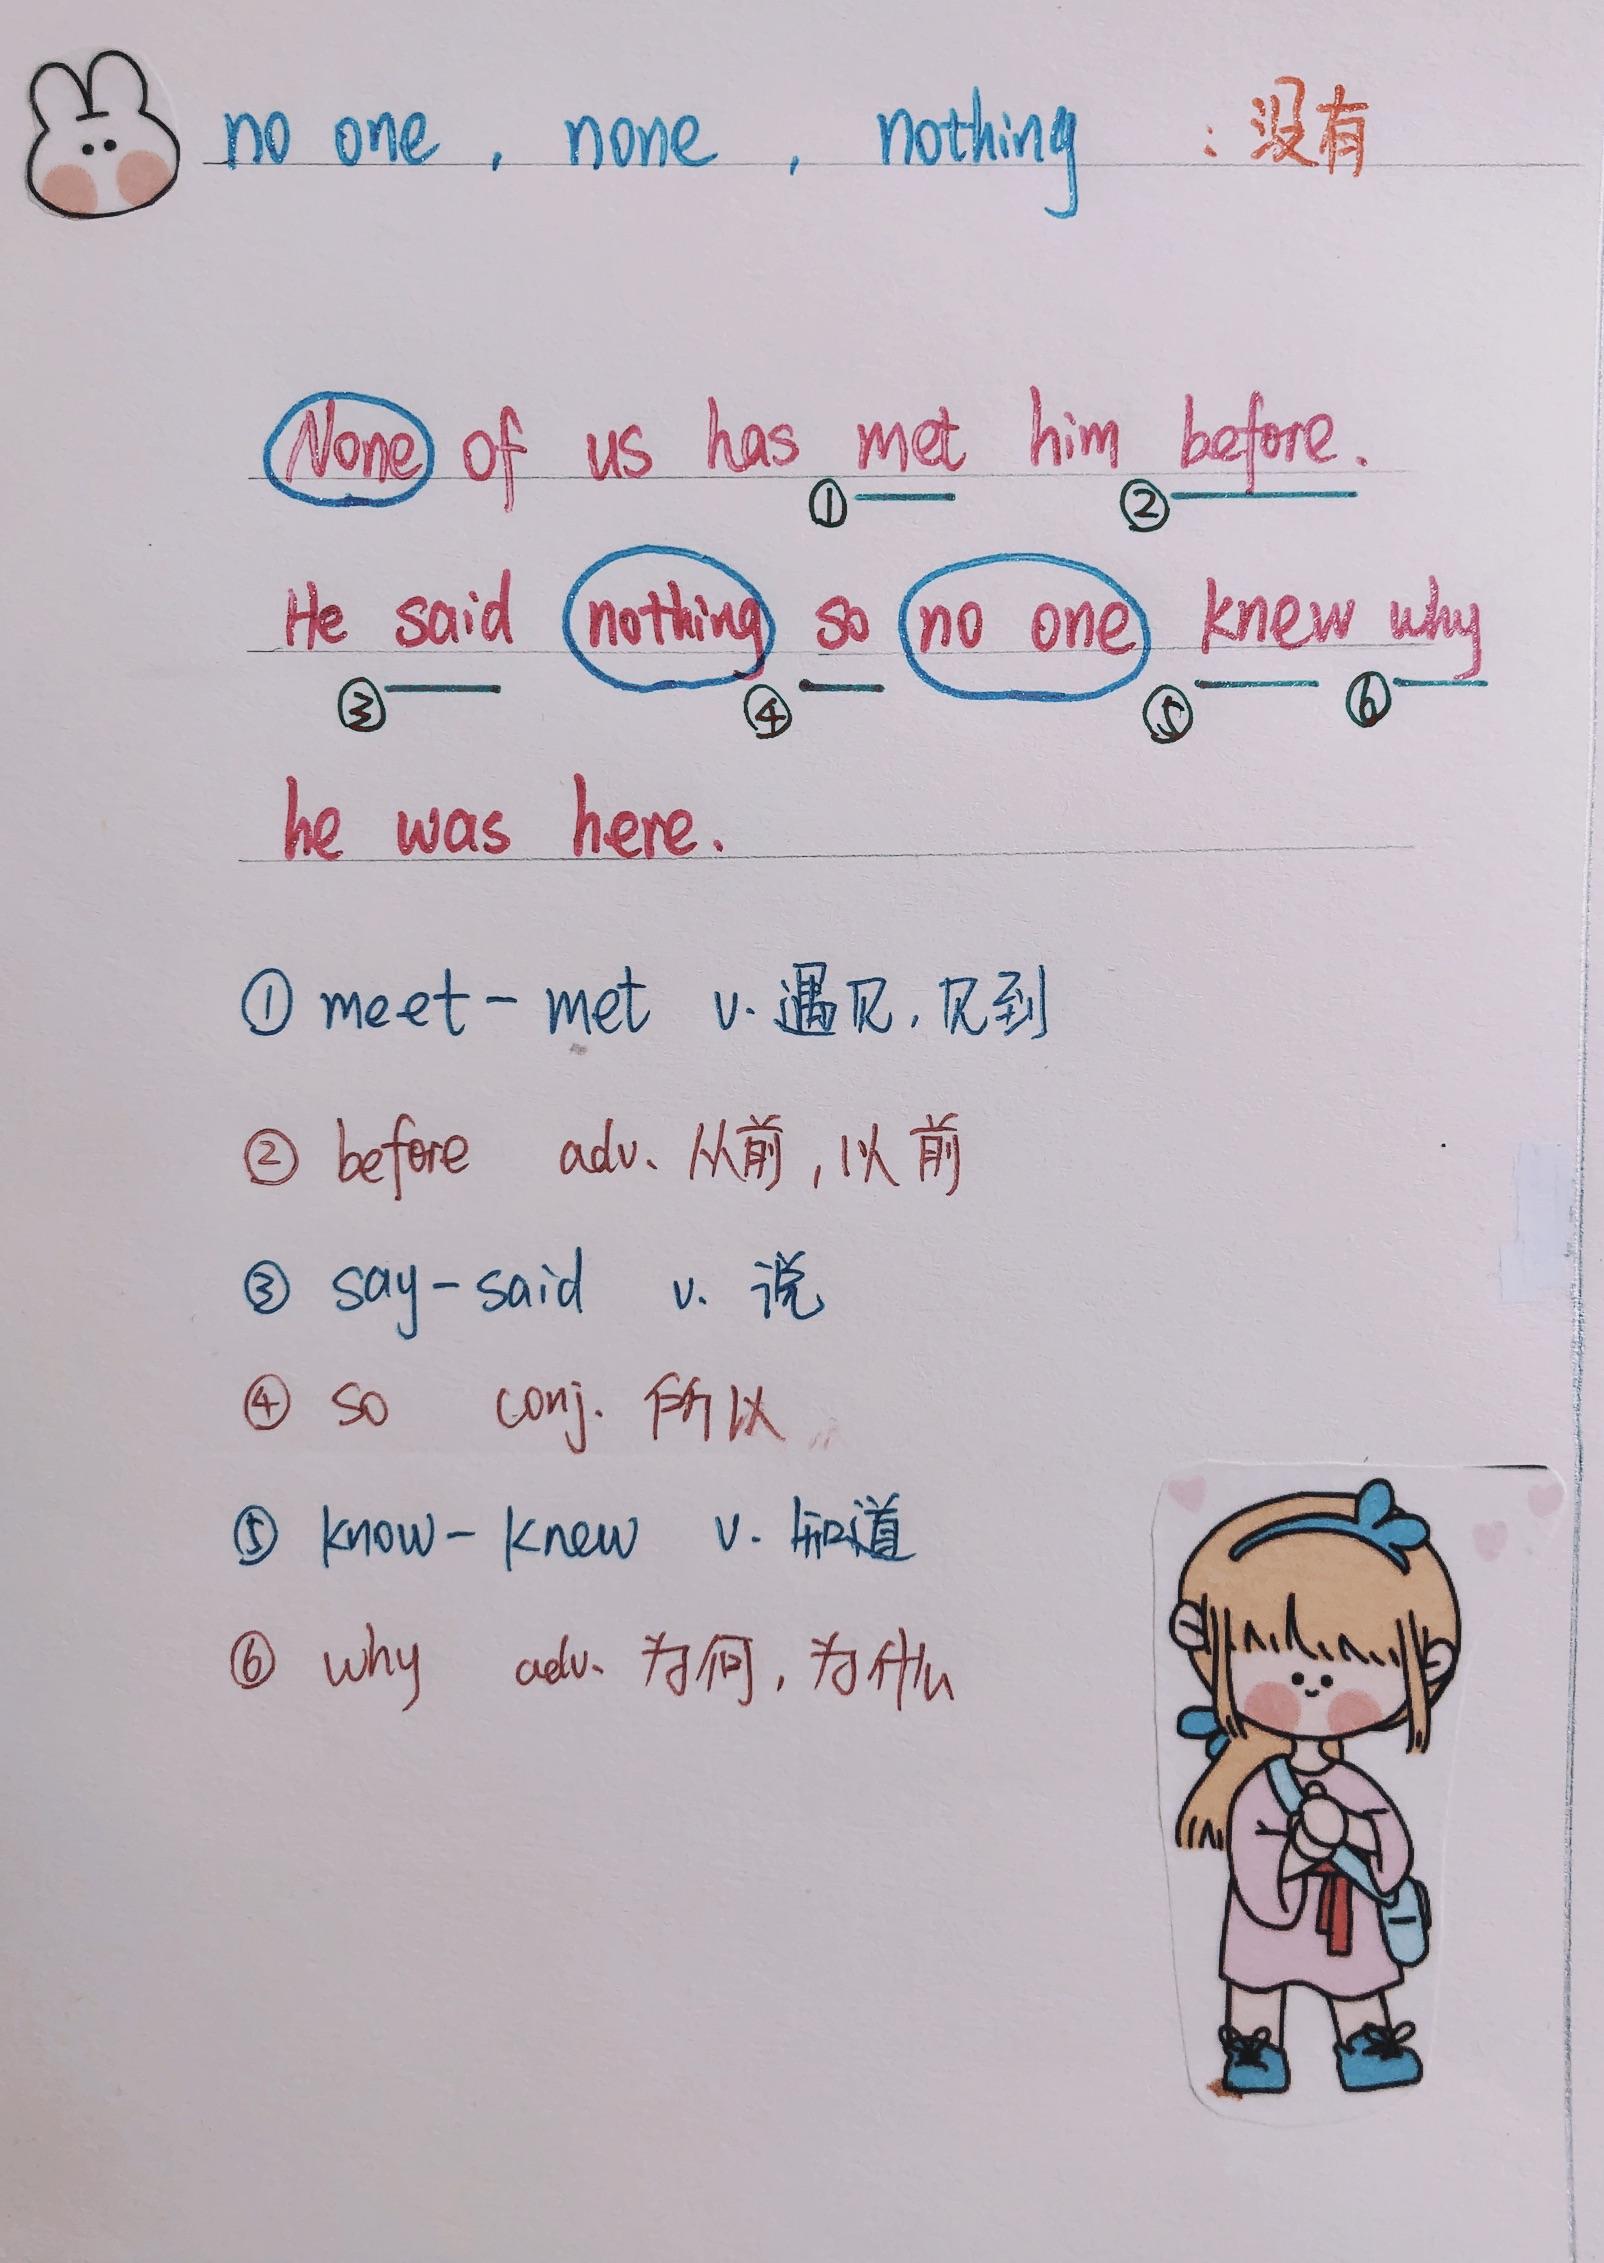 no one , none , nothing : 没有
None of us has met him before.
① ②
He said nothing so no one knew why
③ ④ ⑤ ⑥
he was here.
① meet - met v. 遇见, 见到
② before adv. 从前, 以前
③ say - said v. 说
④ so conj. 所以
⑤ know - knew v. 知道
⑥ why adv. 为何, 为什么